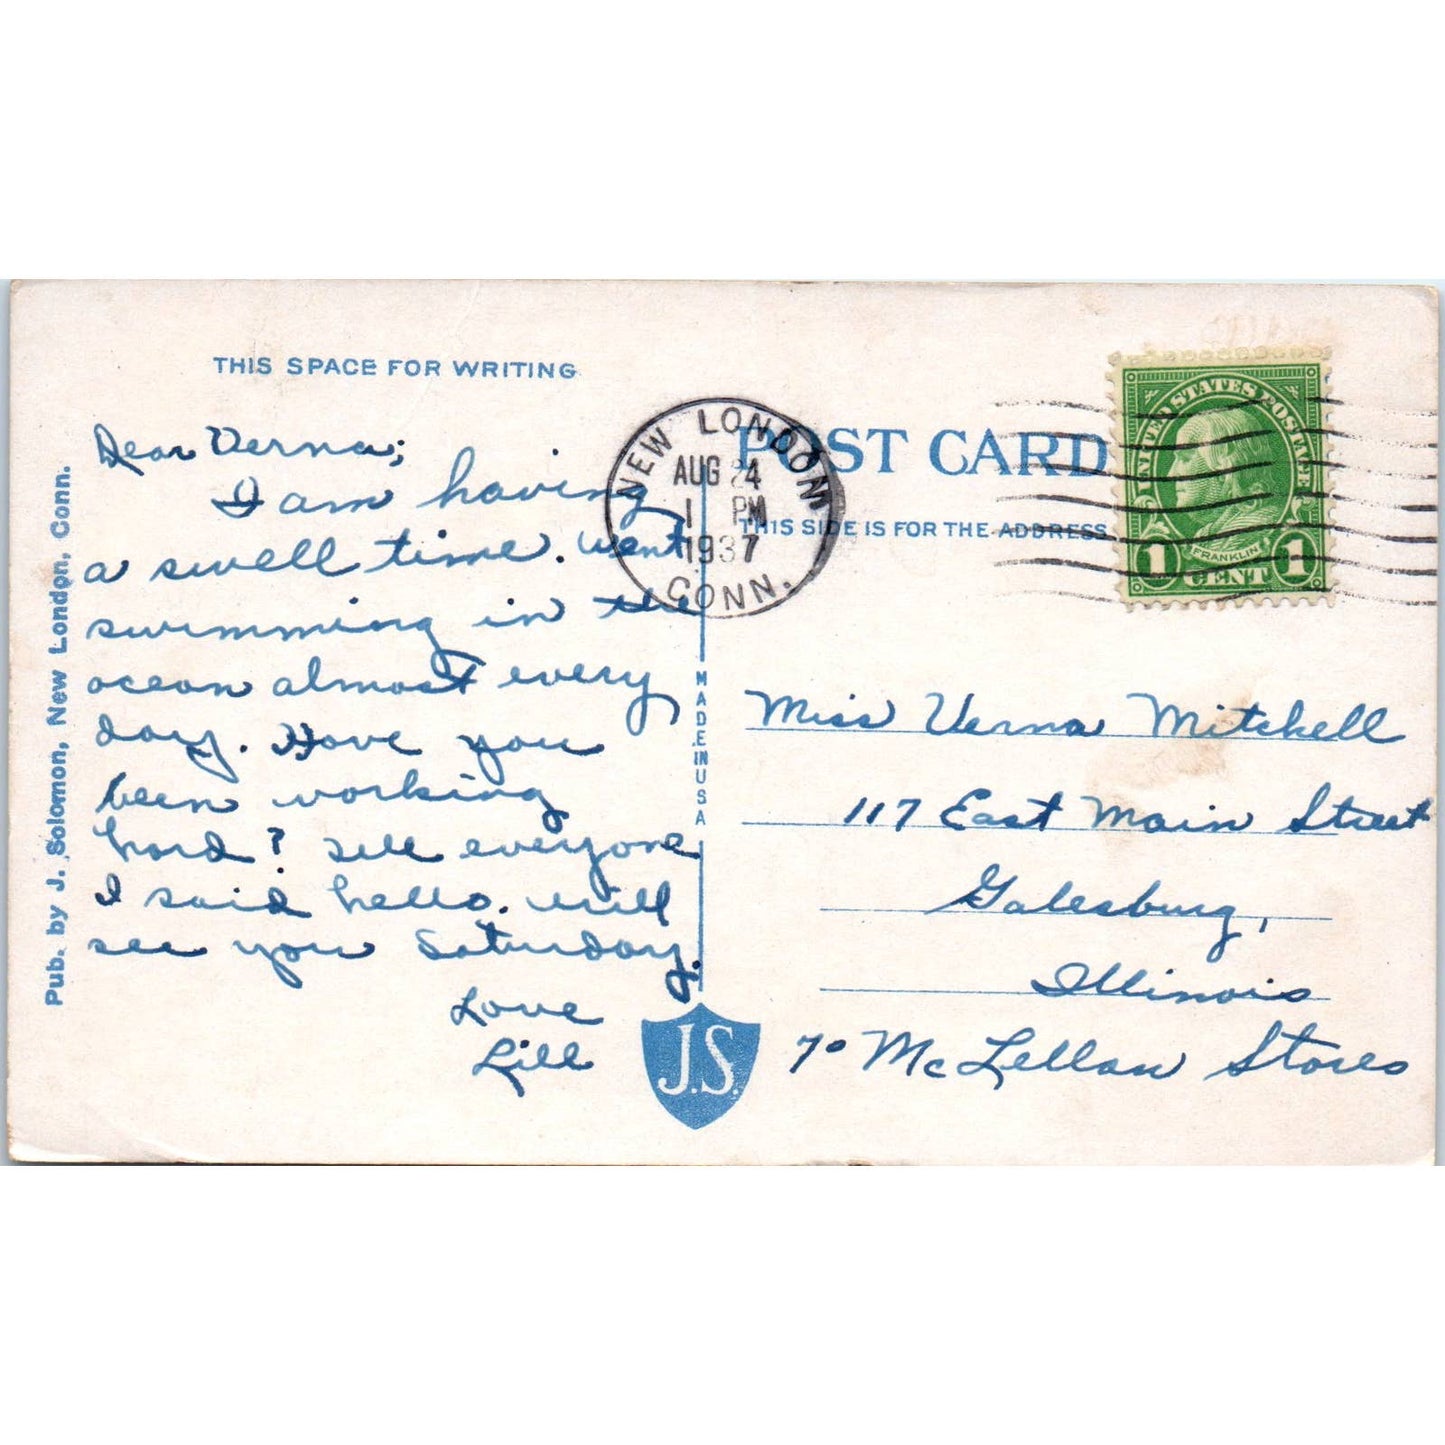 THIS SPACE FOR WRITING
Dear Verna;
I am having
a swell time. Went
swimming in the
ocean almost every
day. Have you
been working
hard? Tell everyone
I said hello. Will
see you Saturday.
Love
Lill
Pub. by J. Solomon, New London, Conn.
NEW LONDON
AUG 24
1 PM
1937
CONN.
POST CARD
THIS SIDE IS FOR THE ADDRESS
UNITED STATES POSTAGE
FRANKLIN
1 CENT 1
MADE IN USA
Miss Verna Mitchell
117 East Main Street
Galesburg,
Illinois
% McLellan Stores
J.S.